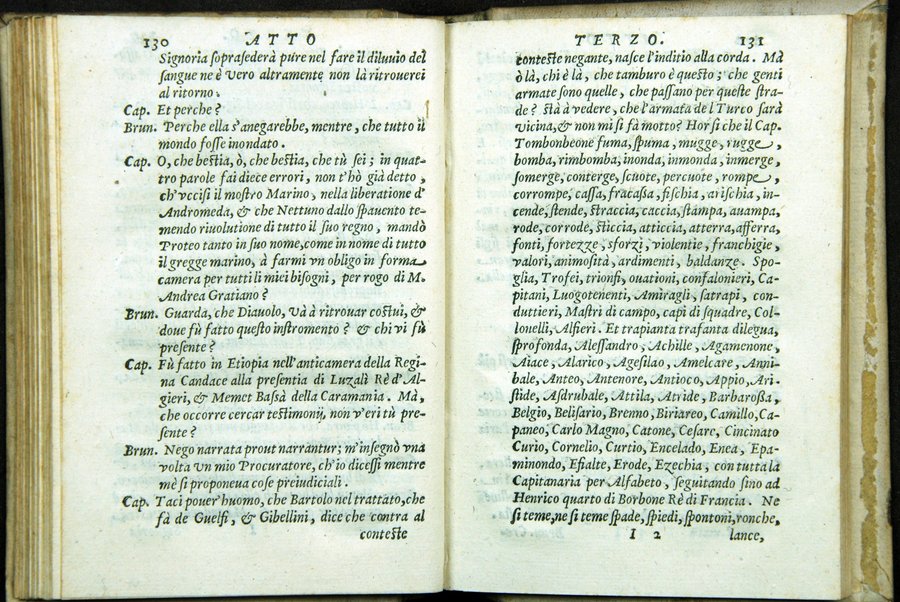 130 ATTO
Signoria soprasederà pure nel fare il diluuio del
sangue ne è vero altramente non là ritrouerei
al ritorno.
Cap. Et perche?
Brun. Perche ella s'anegarebbe, mentre, che tutto il
mondo fosse inondato.
Cap. O, che bestia, ò, che bestia, che tù sei; in quat-
tro parole fai diece errori, non t'hò già detto,
ch'vccisi il mostro Marino, nella liberatione d'
Andromeda, & che Nettuno dallo spauento te-
mendo riuolutione di tutto il suo regno, mandò
Proteo tanto in suo nome, come in nome di tutto
il gregge marino, à farmi vn obligo in forma
camera per tutti li miei bisogni, per rogo di M.
Andrea Gratiano?
Brun. Guarda, che Diauolo, và à ritrouar costui, &
doue fù fatto questo instromento? & chi vi fù
presente?
Cap. Fù fatto in Etiopia nell'anticamera della Regi-
na Candace alla presentia di Luzalì Rè d'Al-
gieri, & Memet Bassà della Caramania. Mà,
che occorre cercar testimonij, non v'eri tù pre-
sente?
Brun. Nego narrata prout narrantur; m'insegnò vna
volta vn mio Procuratore, ch'io dicessi mentre
mè si proponeua cose preiudiciali.
Cap. Taci pouer'huomo, che Bartolo nel trattato, che
fà de Guelfi, & Gibellini, dice che contra al
conteste
TERZO. 131
conteste negante, nasce l'inditio alla corda. Mà
ò là, chi è là, che tamburo è questo; che genti
armate sono quelle, che passano per queste stra-
de? stà à vedere, che l'armata del Turco sarà
vicina, & non mi si fà motto? Hor sì che il Cap.
Tombonbeone fuma, spuma, mugge, rugge,
bomba, rimbomba, inonda, inmonda, inmerge,
somerge, conterge, scuote, percuote, rompe,
corrompe, cassa, fracassa, fischia, arischia, in-
cende, stende, straccia, caccia, stampa, auampa,
rode, corrode, sticcia, atticcia, atterra, afferra,
fonti, fortezze, sforzi, violentie, franchigie,
valori, animosità, ardimenti, baldanze. Spo-
glia, Trofei, trionfi, ouationi, confalonieri, Ca-
pitani, Luogotenenti, Amiragli, satrapi, con-
duttieri, Mastri di campo, capi di squadre, Col-
lonelli, Alfieri. Et trapianta trafanta dilegua,
sprofonda, Alessandro, Achille, Agamenone,
Aiace, Alarico, Agesilao, Amelcare, Anni-
bale, Anteo, Antenore, Antioco, Appio, Ari-
stide, Asdrubale, Attila, Atride, Barbarossa,
Belgio, Belisario, Brenno, Biriareo, Camillo, Ca-
paneo, Carlo Magno, Catone, Cesare, Cincinato
Curio, Cornelio, Curtio, Encelado, Enea, Epa-
minondo, Efialte, Erode, Ezechia, con tutta la
Capitanaria per Alfabeto, seguitando sino ad
Henrico quarto di Borbone Rè di Francia. Ne
si teme, ne si teme spade, spiedi, spontoni, ronche,
I 2 lance,